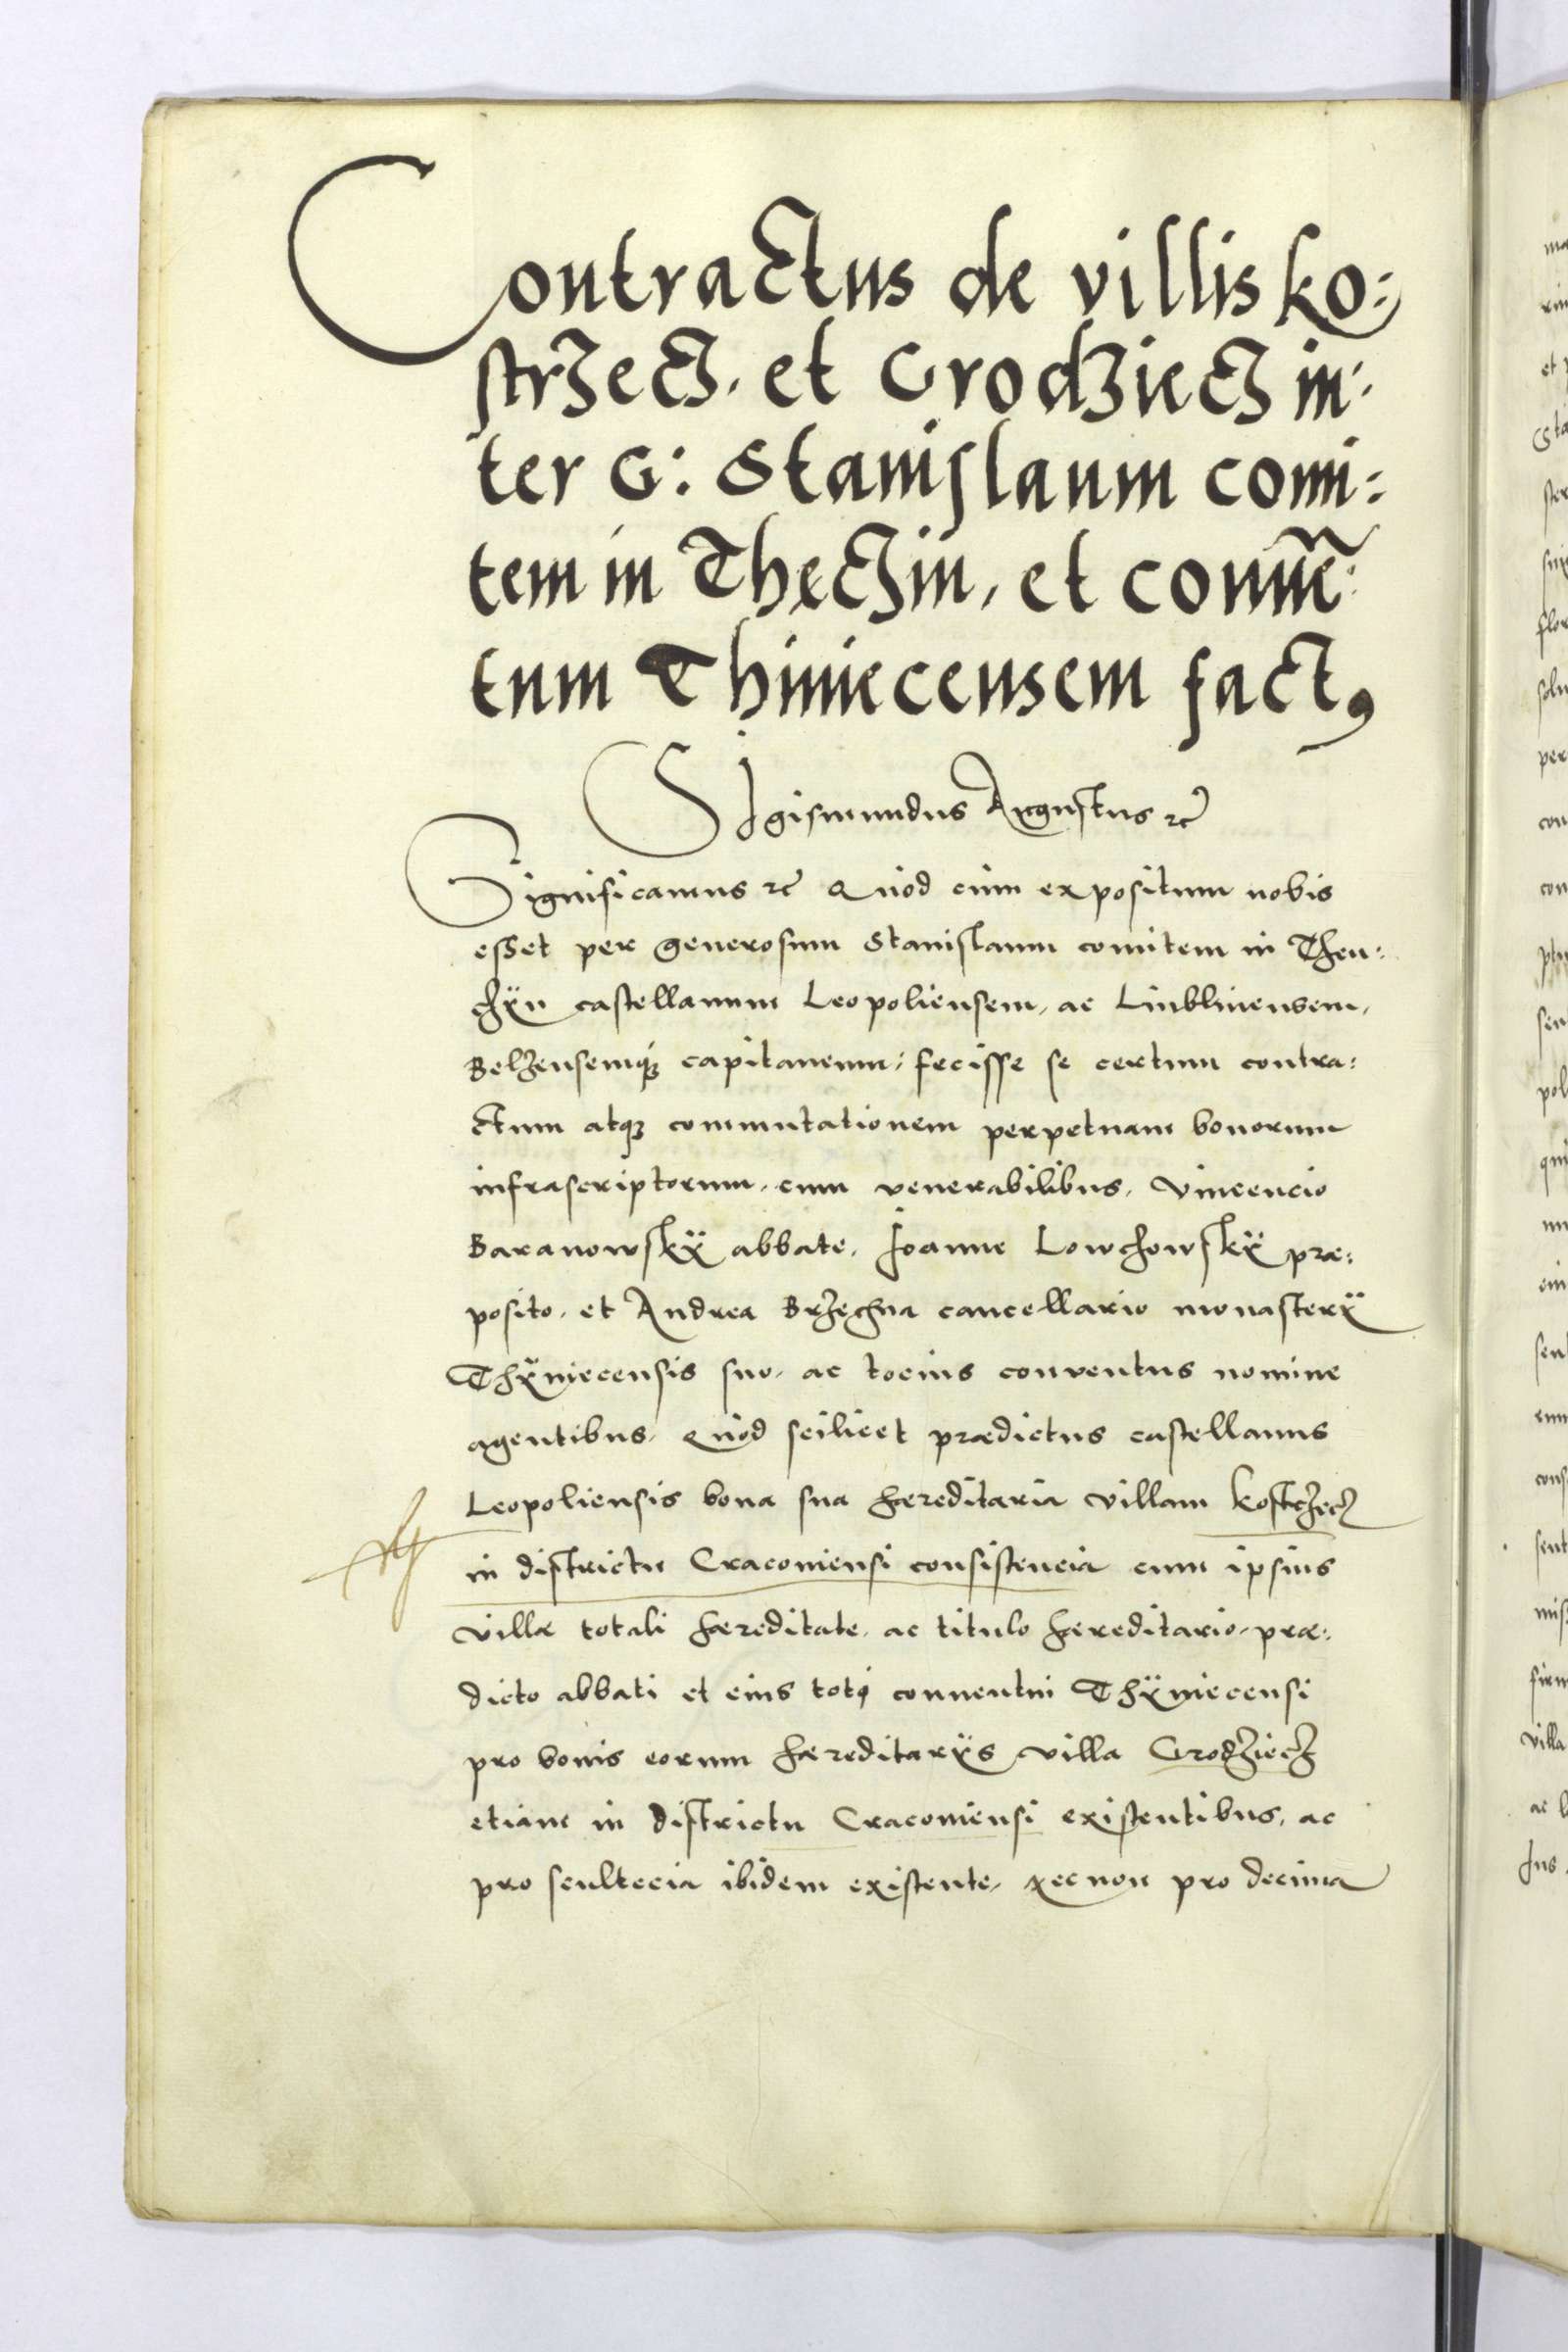 Contractus de villis Ko:
strzecz, et Grodziecz in:
ter G: Stanislaum comi:
tem in Theczin, et conue͂:
tum Thiniecensem factꝰ
Sigismundus Augustus ꝛc̃
Significamus ꝛc̃ Quod cum expositum nobis
esset per generosum Stanislaum comitem in Then:
chÿn castellanum Leopoliensem, ac Liublinensem,
Belzensemqꝫ capitaneum, fecisse se certum contra:
ctum atqꝫ commutationem perpetuam bonorum
infrascriptorum, cum venerabilibus, Vincencio
Baranowskÿ abbate, Joanne Lowchowskÿ præ:
posito, et Andrea Brzechna cancellario monasterÿ
Thÿniecensis suo, ac tocius conventus nomine
agentibus, Quod scilicet prædictus castellanus
Leopoliensis bona sua hæreditaria villam Kostrzecz
in districtu Cracoviensi consistencia cum ipsius
villæ totali hæreditate, ac titulo hæreditario, præ:
dicto abbati et eius toti conuentui Thÿniecensi
pro bonis eorum hæreditarÿs villa Grodziecz
etiam in districtu Cracoviensi existentibus, ac
pro scultecia ibidem existente, necnon pro decima